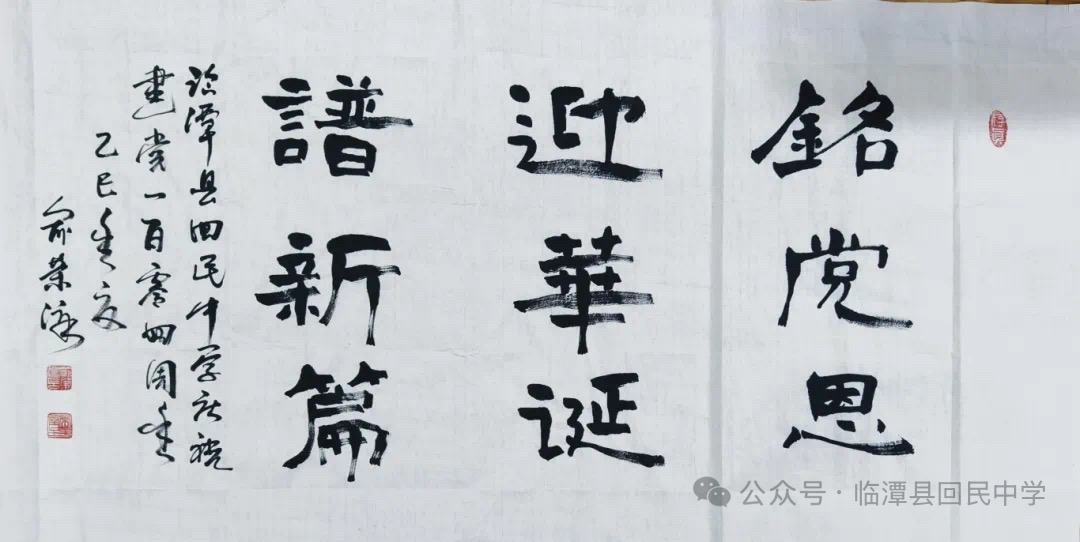 銘党恩
迎華诞
譜新篇
临潭县回民中学庆祝
建党一百零四周年
乙巳年夏
俞荣
公众号·临潭县回民中学